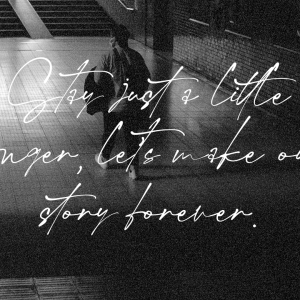 Stay just a little
nger, let's make ou
story forever.